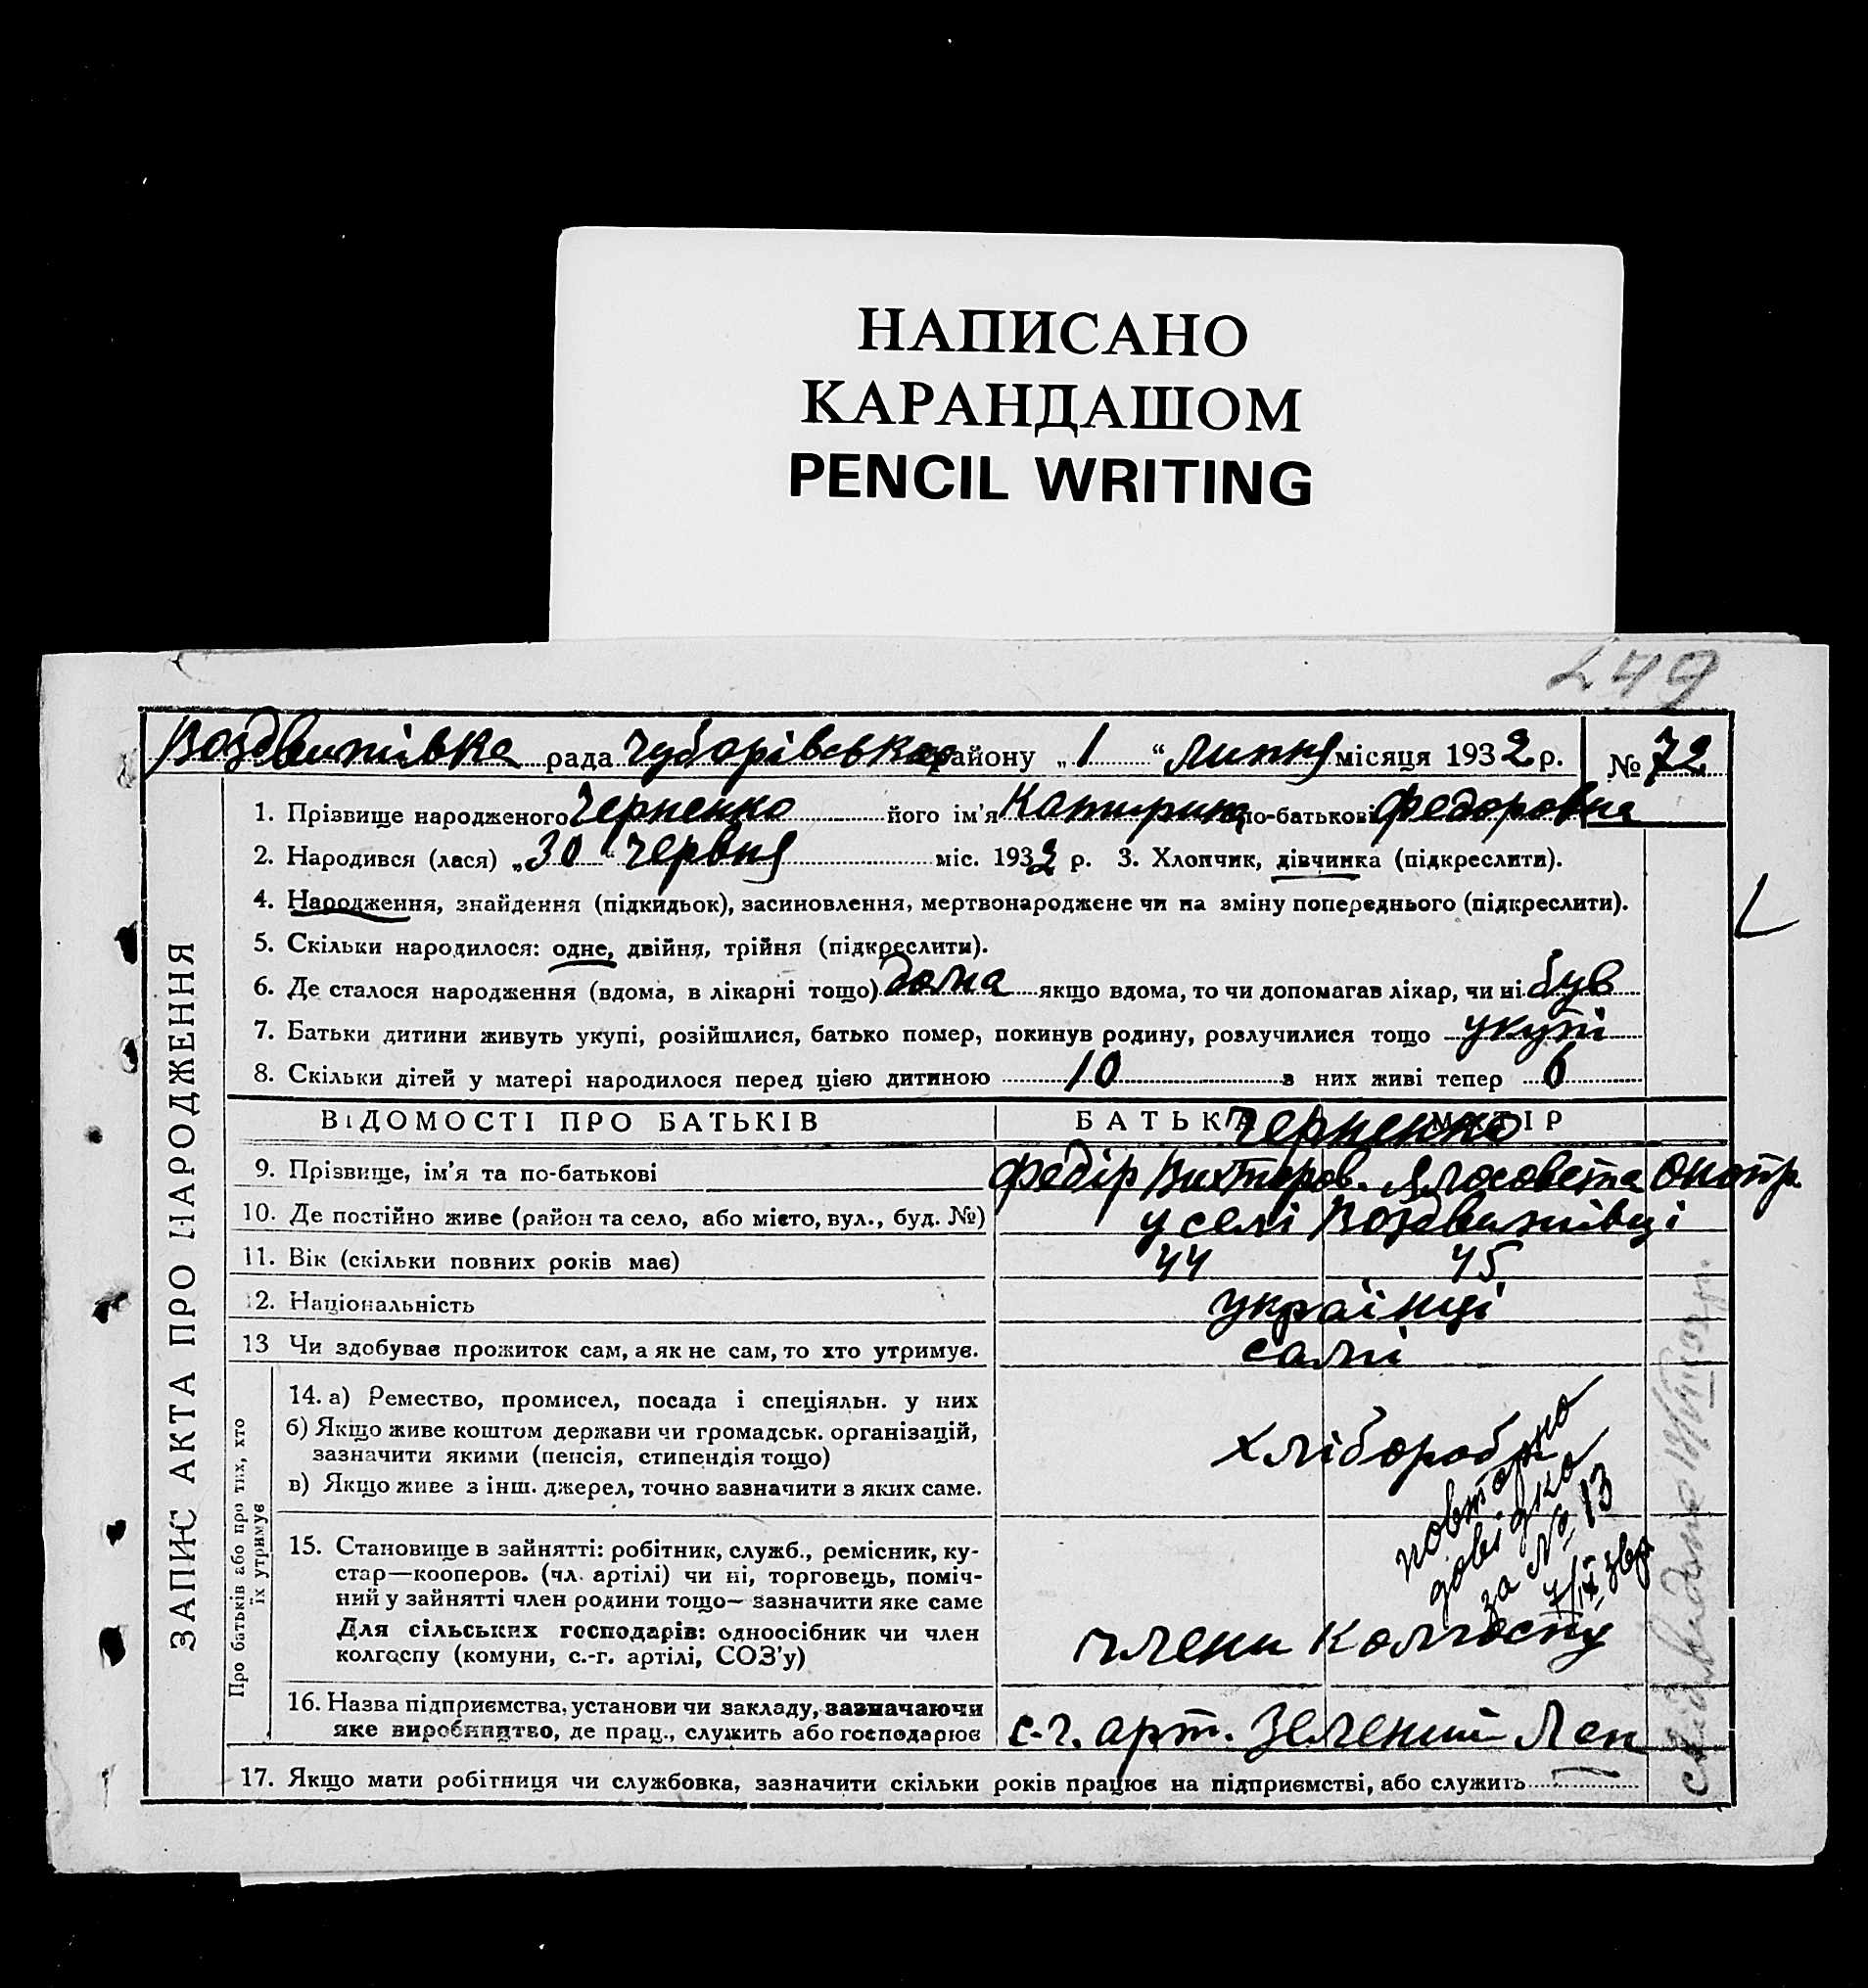 НАПИСАНО
КАРАНДАШОМ
PENCIL WRITING
249
Воздвижівка рада Чубарівського району „1“ Липня місяця 1932 р. № 72
ЗАПИС АКТА ПРО НАРОДЖЕННЯ
1. Прізвище народженого Черненко його ім'я Катирина по-батькові Федоровна
2. Народився (лася) „30“ Червня міс. 1932 р. 3. Хлопчик, дівчинка (підкреслити).
4. Народження, знайдення (підкидьок), засиновлення, мертвонароджене чи на зміну попереднього (підкреслити).
5. Скільки народилося: одне, двійня, трійня (підкреслити).
6. Де сталося народження (вдома, в лікарні тощо) дома якщо вдома, то чи допомагав лікар, чи ні був
7. Батьки дитини живуть укупі, розійшлися, батько помер, покинув родину, розлучилися тощо укупі
8. Скільки дітей у матері народилося перед цією дитиною 10 з них живі тепер 6
ВІДОМОСТІ ПРО БАТЬКІВ БАТЬКА МАТІР
Черненко
9. Прізвище, ім'я та по-батькові Федір Вихторов. Онопр.
10. Де постійно живе (район та село, або місто, вул., буд. №) у селі Воздвижівці
11. Вік (скільки повних років має) 44 45
12. Національність українці
13 Чи здобуває прожиток сам, а як не сам, то хто утримує. самі
Про батьків або про тих, хто
їх утримує
14. а) Ремество, промисел, посада і спеціяльн. у них
б) Якщо живе коштом держави чи громадськ. організацій,
зазначити якими (пенсія, стипендія тощо)
в) Якщо живе з інш. джерел, точно зазначити з яких саме.
хлібороби
повторно
довідка
за № 13
7/IX
15. Становище в зайнятті: робітник, служб., ремісник, ку-
стар—кооперов. (чл. артілі) чи ні, торговець, поміч-
ний у зайнятті член родини тощо— зазначити яке саме
Для сільських господарів: одноосібник чи член
колгоспу (комуни, с.-г. артілі, СОЗ'у)
члени колгоспу
16. Назва підприємства, установи чи закладу, зазначаючи
яке виробництво, де прац., служить або господарює
с-г. арт. Зелений Лен
17. Якщо мати робітниця чи службовка, зазначити скільки років працює на підприємстві, або служить —